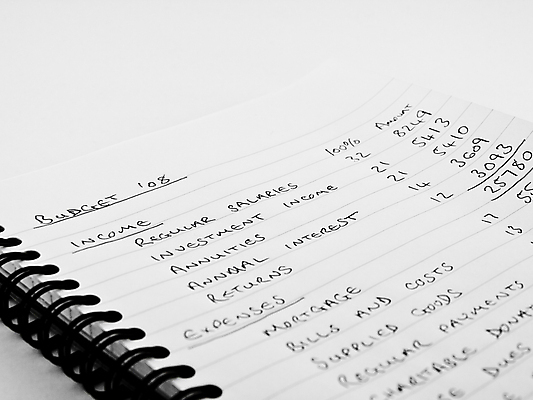 BUDGET '08
INCOME 100% Amount
REGULAR SALARIES 32 8249
INVESTMENT INCOME 21 5413
ANNUITIES 21 5410
ANNUAL INTEREST 14 3609
RETURNS 12 3093
25780
EXPENSES
MORTGAGE 17
BILLS AND COSTS 13
SUPPLIED GOODS
REGULAR PAYMENTS
CHARITABLE
DUES